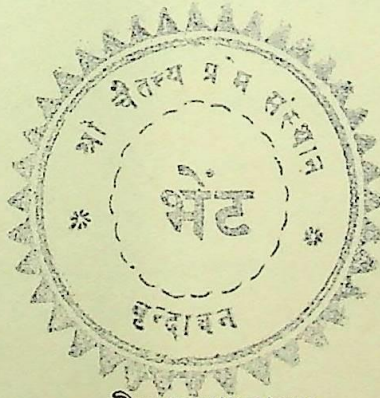 श्री चैतन्य प्रेम संस्थान
भेंट
वृन्दावन